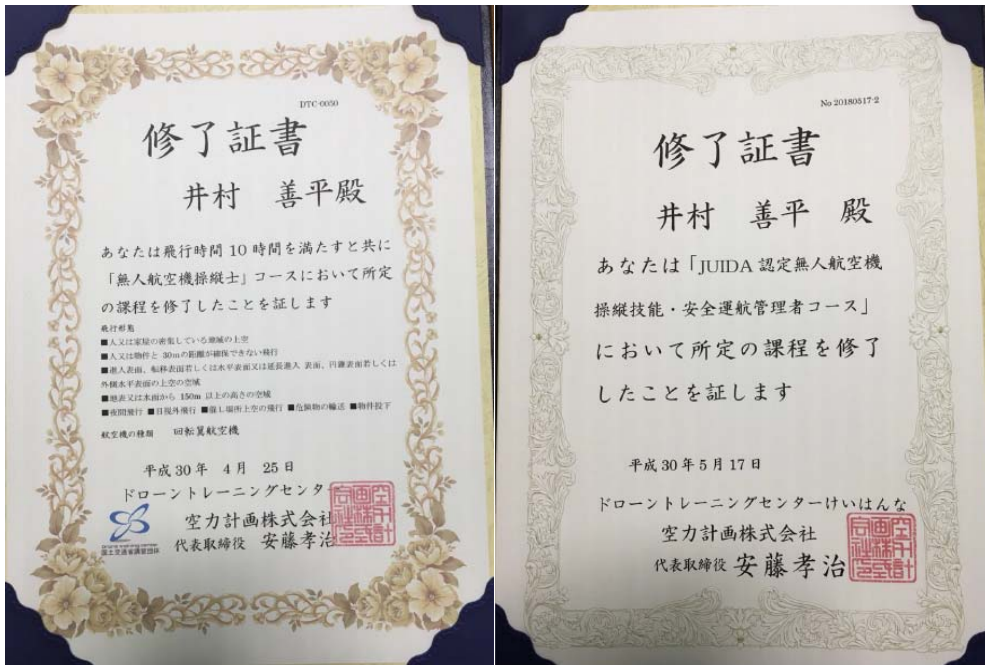 DTC-0050
修了証書
井村 善平殿
あなたは飛行時間 10 時間を満たすと共に
「無人航空機操縦士」コースにおいて所定
の課程を修了したことを証します
飛行形態
■人又は家屋の密集している地域の上空
■人又は物件と 30mの距離が確保できない飛行
■進入表面、転移表面若しくは水平表面又は延長進入 表面、円錐表面若しくは
外側水平表面の上空の空域
■地表又は水面から 150m 以上の高さの空域
■夜間飛行 ■目視外飛行 ■催し場所上空の飛行 ■危険物の輸送 ■物件投下
航空機の種類 回転翼航空機
平成 30 年 4 月 25 日
ドローントレーニングセンタ
空力計画株式会社
代表取締役 安藤孝治
drone training center
国土交通省講習団体
No 20180517-2
修了証書
井村 善平 殿
あなたは「JUIDA 認定無人航空機
操縦技能・安全運航管理者コース」
において所定の課程を修了
したことを証します
平成 30 年 5 月 17 日
ドローントレーニングセンターけいはんな
空力計画株式会社
代表取締役 安藤孝治